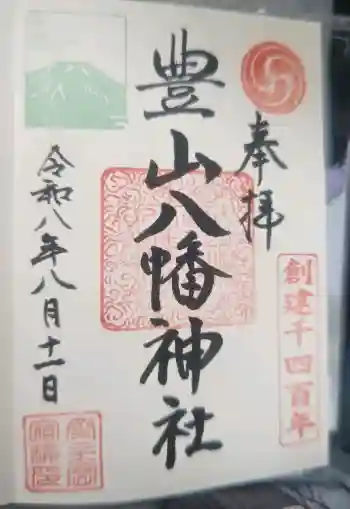 奉拝
創建千四百年
豊山八幡神社
令和八年八月十一日